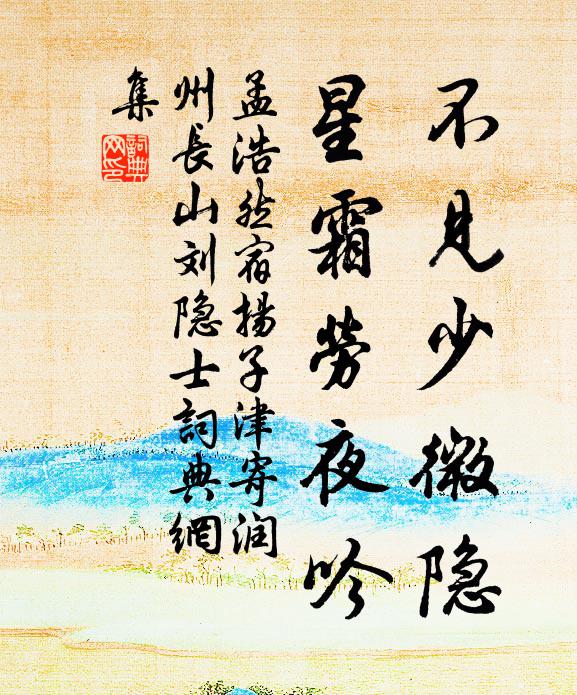 不见少微隐
星霜劳夜吟
孟浩然宿揚子津寄润
州長山刘隐士詞典網
集
詞典
网印